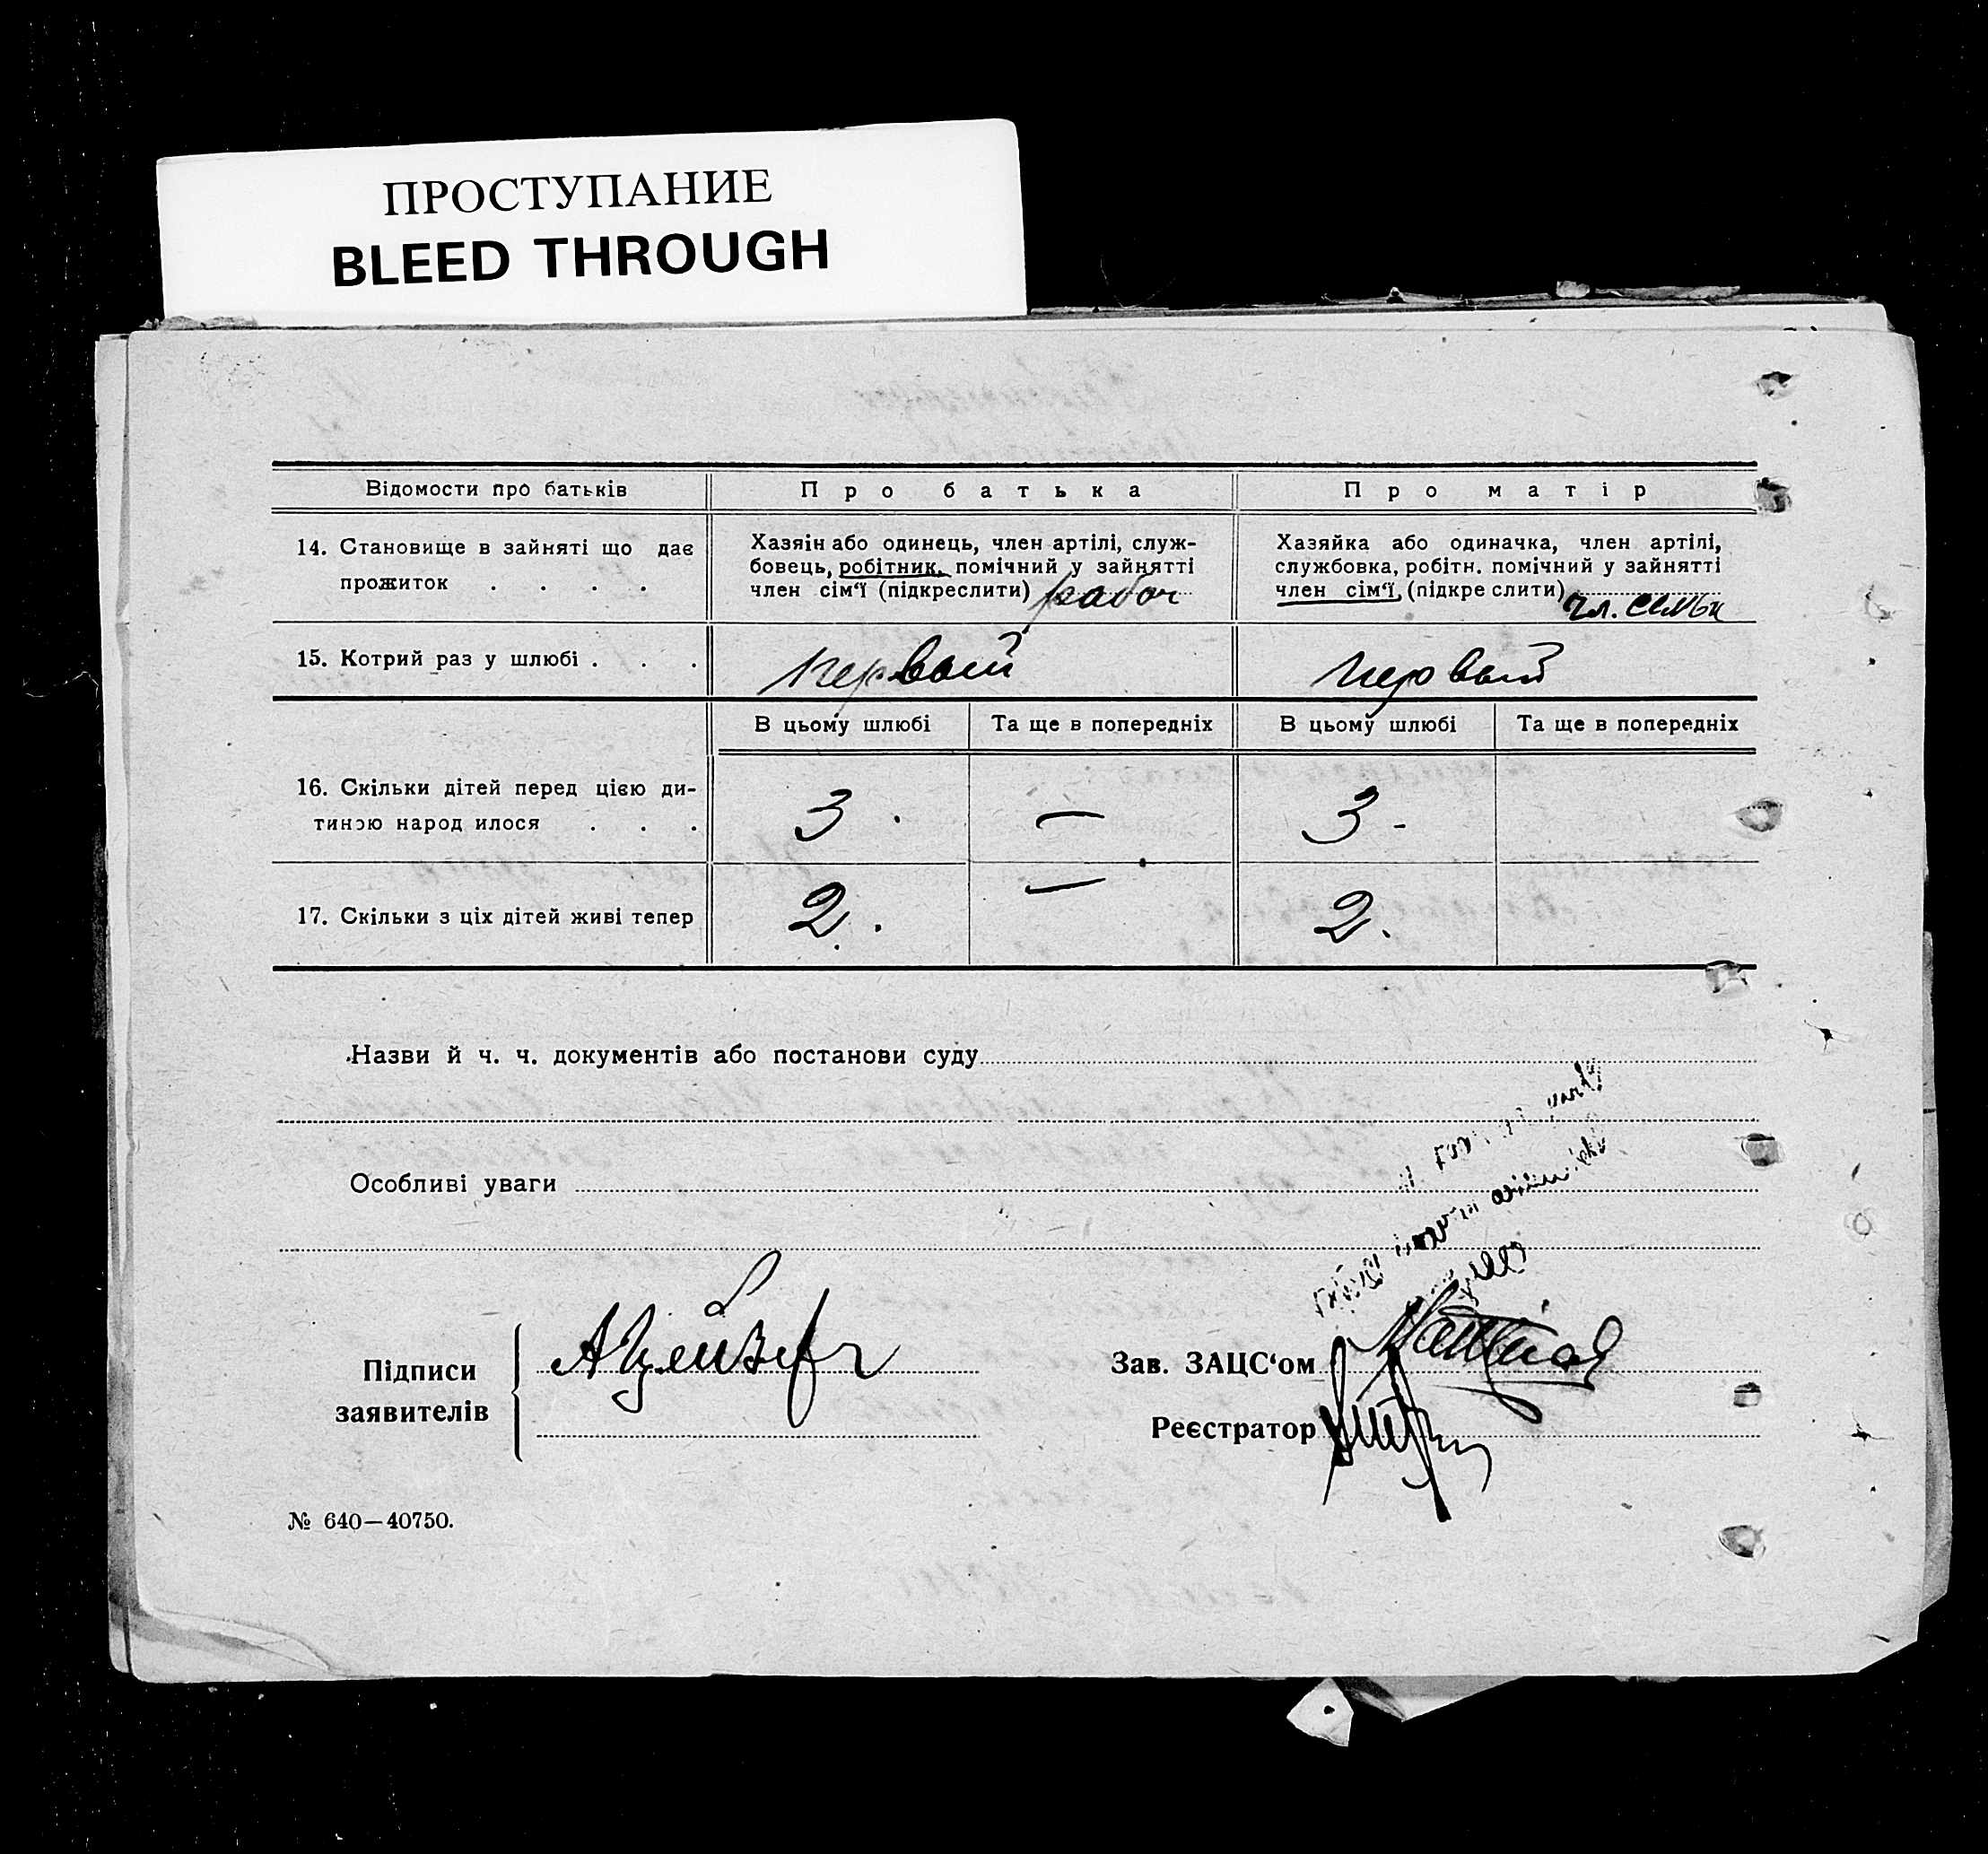 ПРОСТУПАНИЕ
BLEED THROUGH
Відомости про батьків
Про батька
Про матір
14. Становище в зайняті що дає
прожиток . . . .
Хазяін або одинець, член артілі, служ-
бовець, робітник, помічний у зайнятті
член сім‘ї (підкреслити) рабоч
Хазяйка або одиначка, член артілі,
службовка, робітн. помічний у зайнятті
член сім‘ї, (підкре слити) чл. семьи
15. Котрий раз у шлюбі . . .
первый
первый
В цьому шлюбі
Та ще в попередніх
В цьому шлюбі
Та ще в попередніх
16. Скільки дітей перед цією ди-
тиною народ илося . . .
3 .
—
3 -
17. Скільки з ціх дітей живі тепер
2.
—
2.
Назви й ч. ч. документів або постанови суду
Особливі уваги
Підписи
заявителів
Зав. ЗАЦС‘ом
Реєстратор
№ 640—40750.